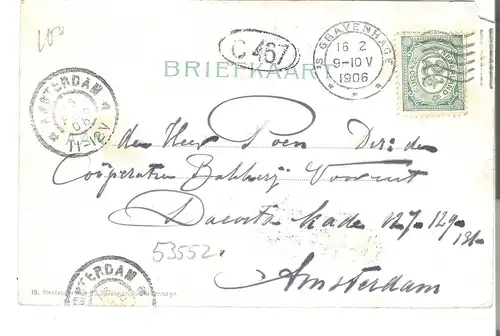 100
C 467
'S GRAVENHAGE
16 2
9-10 V
1906
BRIEFKAART
AMSTERDAM
11-12V
den Heer Poen Dir: der
Coöperatieve Bakkerij Vooruit
Dacosta Kade 127-129-
131-
53552
Amsterdam
AMSTERDAM